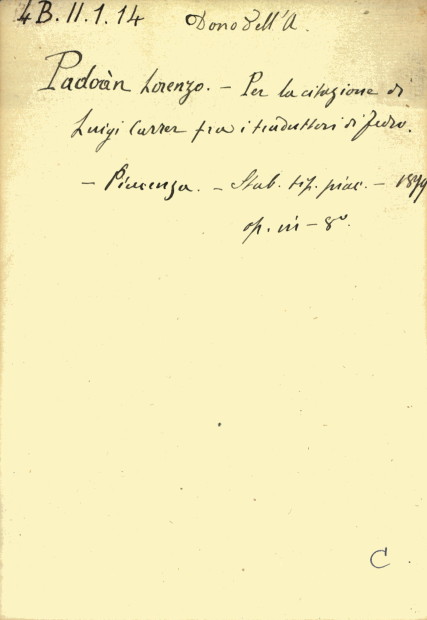 4B.II.1.14 Dono dell'A.
Padoàn Lorenzo. - Per la citazione di
Luigi Carrer fra i traduttori di Fedro.
- Piacenza. - Stab. tip. piac. - 1879
op. in - 8º.
C